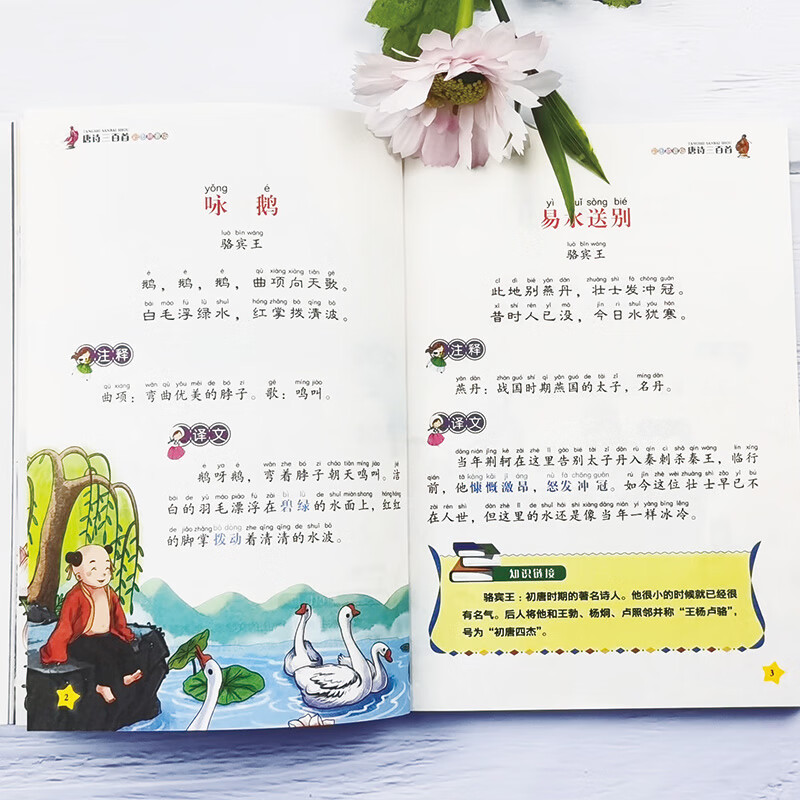 TANGSHI SANBAI SHOU
唐诗三百首
yǒng é
咏 鹅
luò bīn wáng
骆宾王
é é é qū xiàng xiàng tiān gē
鹅，鹅，鹅，曲项向天歌。
bái máo fú lǜ shuǐ hóng zhǎng bō qīng bō
白毛浮绿水，红掌拨清波。
注释
qū xiàng wān qū yōu měi de bó zi gē míng jiào
曲项：弯曲优美的脖子。歌：鸣叫。
译文
é ya é wān zhe bó zi cháo tiān míng jiào
鹅呀鹅，弯着脖子朝天鸣叫。洁
bái de yǔ máo piāo fú zài bì lǜ de shuǐ miàn shang hóng hóng
白的羽毛漂浮在碧绿的水面上，红红
de jiǎo zhǎng bō dòng zhe qīng qīng de shuǐ bō
的脚掌拨动着清清的水波。
2
TANGSHI SANBAI SHOU
唐诗三百首
yì suǐ sòng bié
易水送别
luò bīn wáng
骆宾王
cǐ dì bié yān dān zhuàng shì fà chōng guān
此地别燕丹，壮士发冲冠。
xī shí rén yǐ mò jīn rì shuǐ yóu hán
昔时人已没，今日水犹寒。
注释
yān dān zhàn guó shí qī yān guó de tài zǐ míng dān
燕丹：战国时期燕国的太子，名丹。
译文
dāng nián jīng kē zài zhè lǐ gào bié tài zǐ dān rù qín cì shā qín wáng lín xíng
当年荆轲在这里告别太子丹入秦刺杀秦王，临行
qián tā kāng kǎi jī áng nù fà chōng guān rú jīn zhè wèi zhuàng shì zǎo yǐ bú
前，他慷慨激昂，怒发冲冠。如今这位壮士早已不
zài rén shì dàn zhè lǐ de shuǐ hái shi xiàng dāng nián yí yàng bīng lěng
在人世，但这里的水还是像当年一样冰冷。
知识链接
骆宾王：初唐时期的著名诗人。他很小的时候就已经很
有名气。后人将他和王勃、杨炯、卢照邻并称“王杨卢骆”，
号为“初唐四杰”。
3